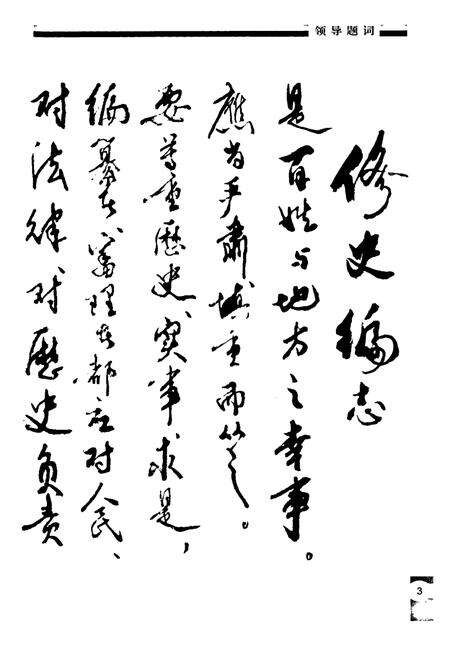 领导题词
修史编志
是百姓与地方之幸事。
應当严肃慎重而之。
要尊重歷史、实事求是，
编纂者、审理者都应对人民、
对法律对歷史负责
3